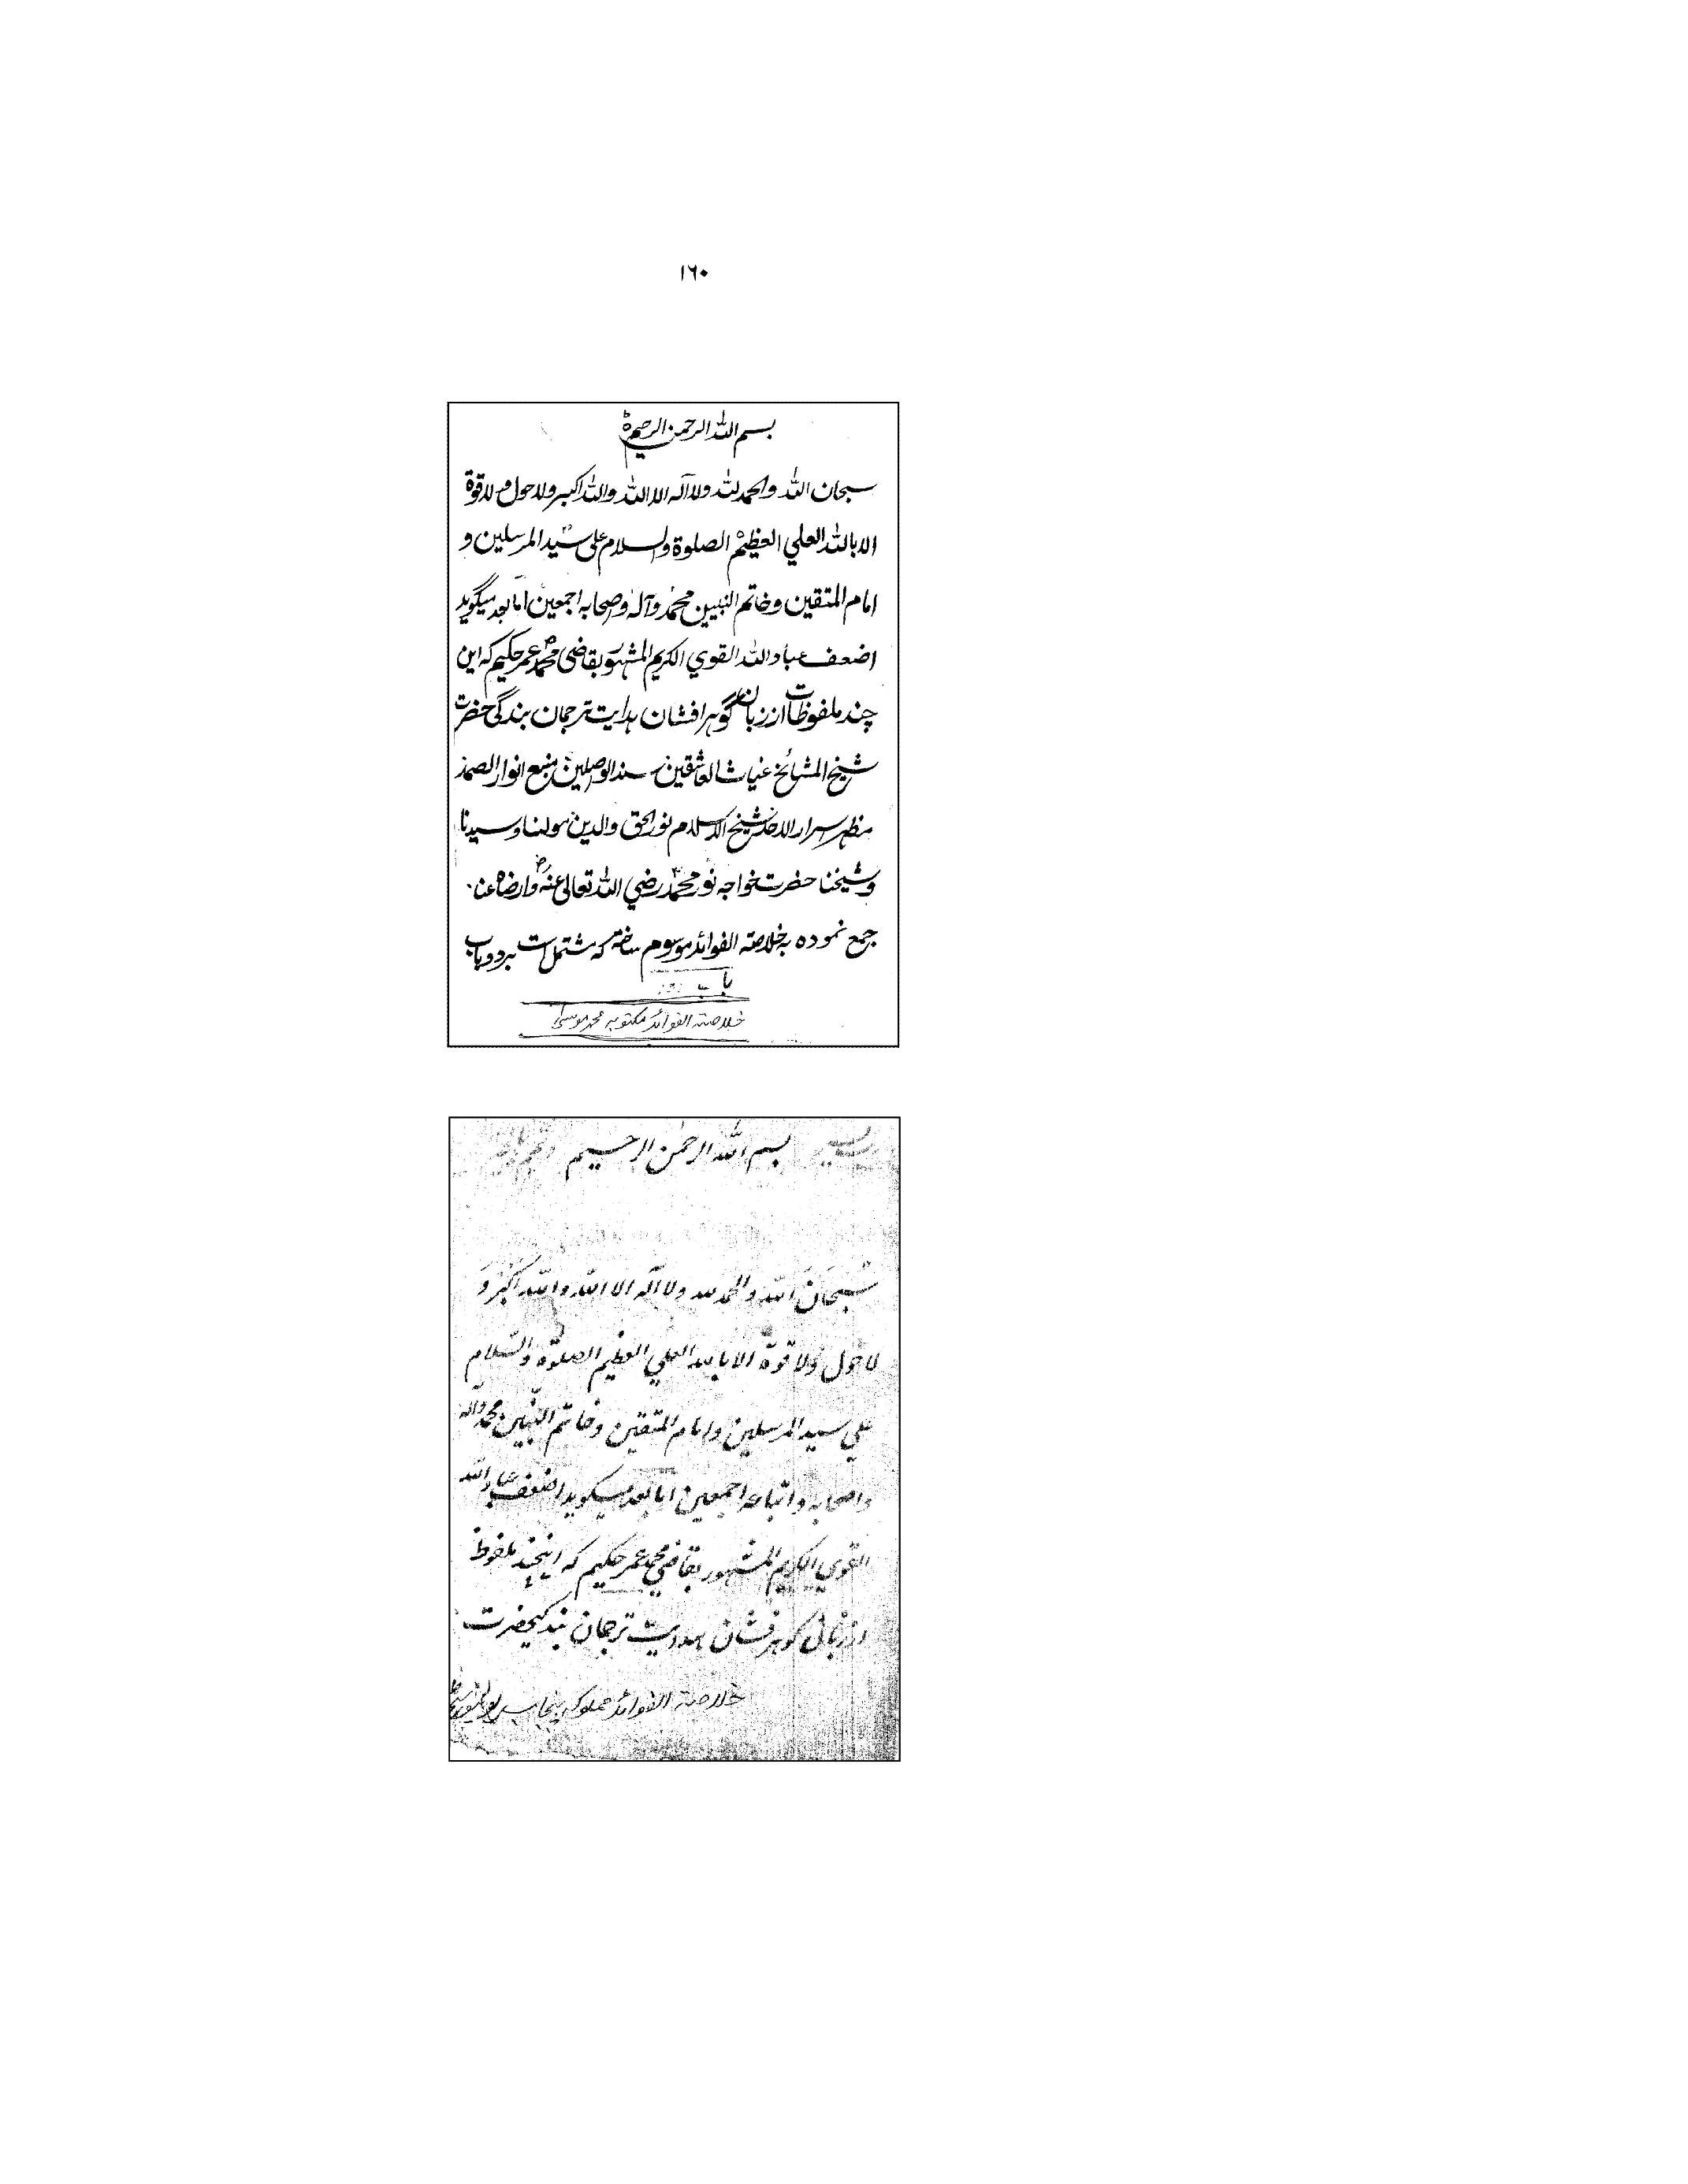 ١٦٠
بسم الله الرحمن الرحيم
سبحان الله والحمد لله ولا آله الا الله والله اكبر ولا حول ولا قوة
الا بالله العلي العظيم الصلوة والسلام على سيد المرسلين و
امام المتقين وخاتم النبيين محمد وآله وصحابه اجمعين اما بعد ميگويد
اضعف عباد الله القوي الكريم المشهور بقاضى محمد عمر حكيم كه اين
چند ملفوظات از زبان گوهر افشان هدايت ترجمان بندگى حضرت
شيخ المشائخ غياث العاشقين سند الواصلين منبع انوار الصمد
مظهر اسرار الاحد شيخ الاسلام نور الحق والدين مولنا و سيدنا
وشيخنا حضرت خواجه نور محمد رضي الله تعالى عنه وارضاه عنا
جمع نموده به خلاصة الفوائد موسوم ساخته كه مشتمل است بر دو باب
باب
خلاصة الفوائد مكتوبه محمد موسىٰ
بسم الله الرحمن الرحيم
سُبحَانَ الله والحمد لله ولا اله الا الله والله اكبر وَ
لا حول ولا قوّة الا بالله العلي العظيم الصلوة والسّلام
علي سيد المرسلين وامام المتقين وخاتم النّبيين محمّد واله
واصحابه واتباعه اجمعين اما بعد ميكويد اضعف عباد الله
القوي الكريم المشهور بقاضي محمد عمر حكيم كه اينچند ملفوظ
از زبانى كوهر فشان هدايت ترجمان بندكيحضرت
خلاصة الفوائد مملوكه پنجاب